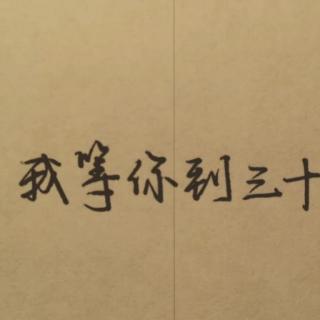 我等你到三十